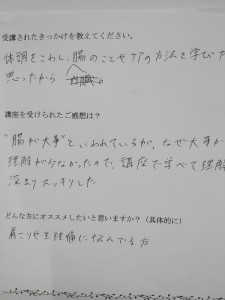 受講されたきっかけを教えてください。
体調をこわし、腸のことやケアの方法を学びた
思ったから
講座を受けられたご感想は?
"腸が大事"といわれているが、なぜ大事か
理解が少なかったので、講座で学べて理解
深まりスッキリした
どんな方にオススメしたいと思いますか?(具体的に)
肩こりや生理痛になんでる方